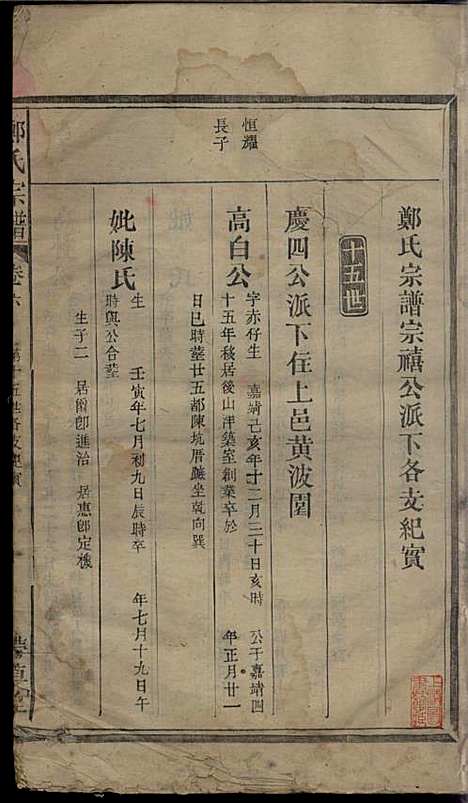 鄭氏宗譜宗禧公派下各支紀實
十五世
慶四公派下住上邑黄波園
恒耀
長子
高白公
字亦仔生 嘉靖己亥年十二月三十日亥時 公于嘉靖四
十五年移居後山洋築室創業卒於 年正月廿一
日巳時塟廿五都陳坑厝 坐乾向巽
妣陳氏
生 壬寅年七月初九日辰時卒 年七月十九日午
時與公合塟
生子二 居 卽進治 居惠卽定機
鄭氏宗譜
卷六
第十五世各支紀實